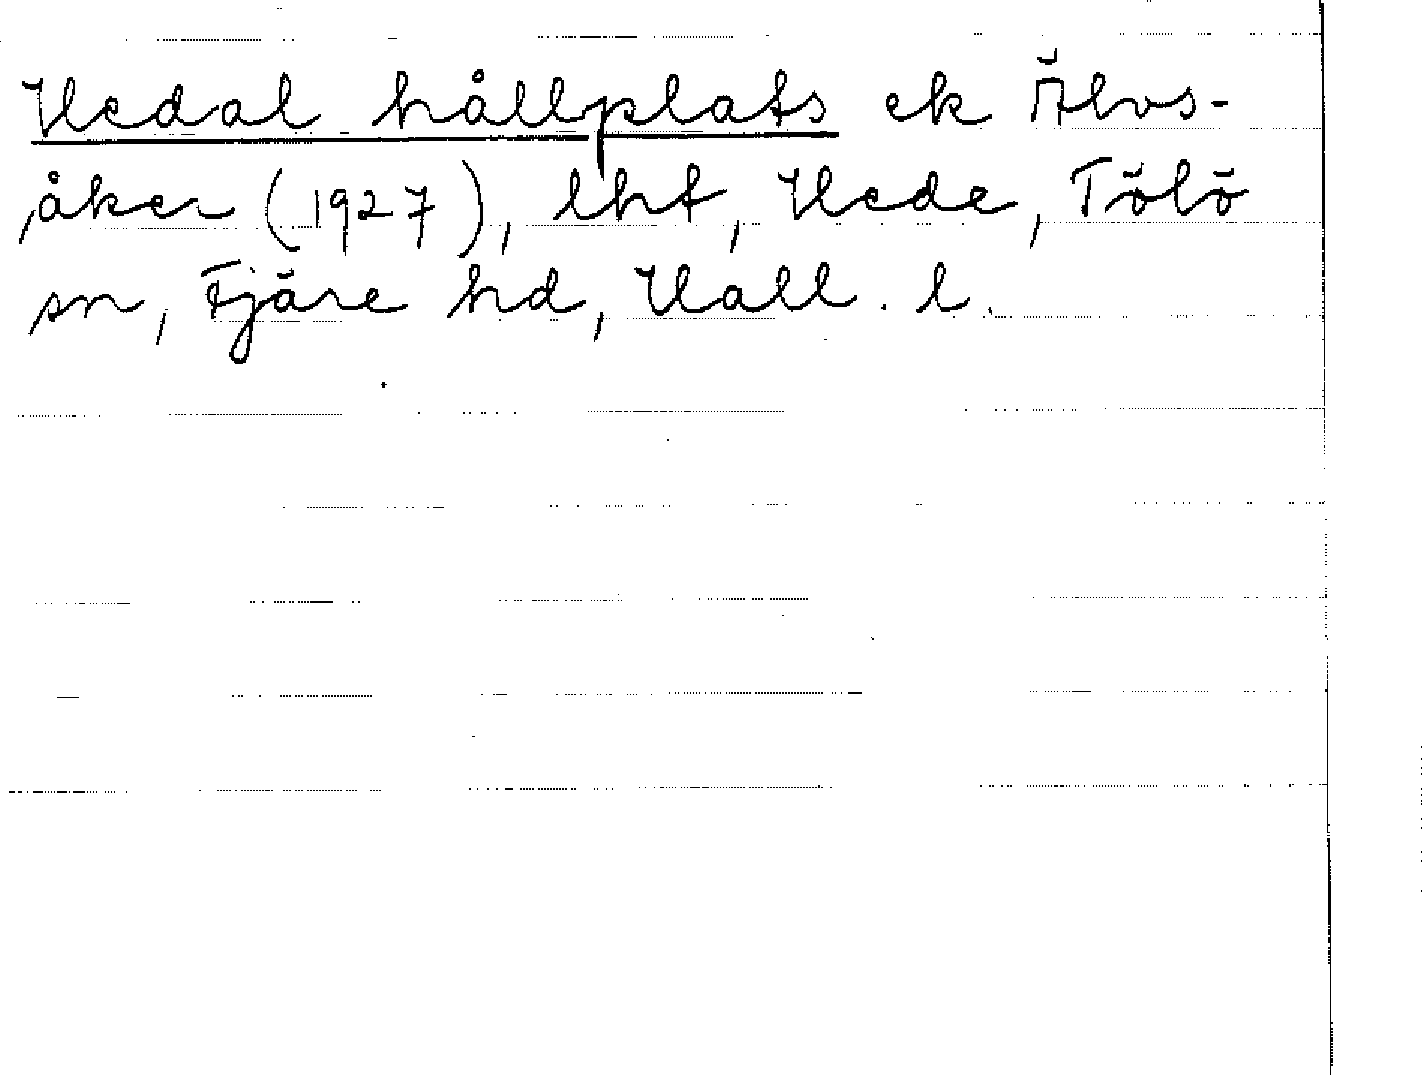 Hedal hållplats ek Älvs-
åker (1927), lht, Hede, Tölö
sn, Fjäre hd, Hall. l.